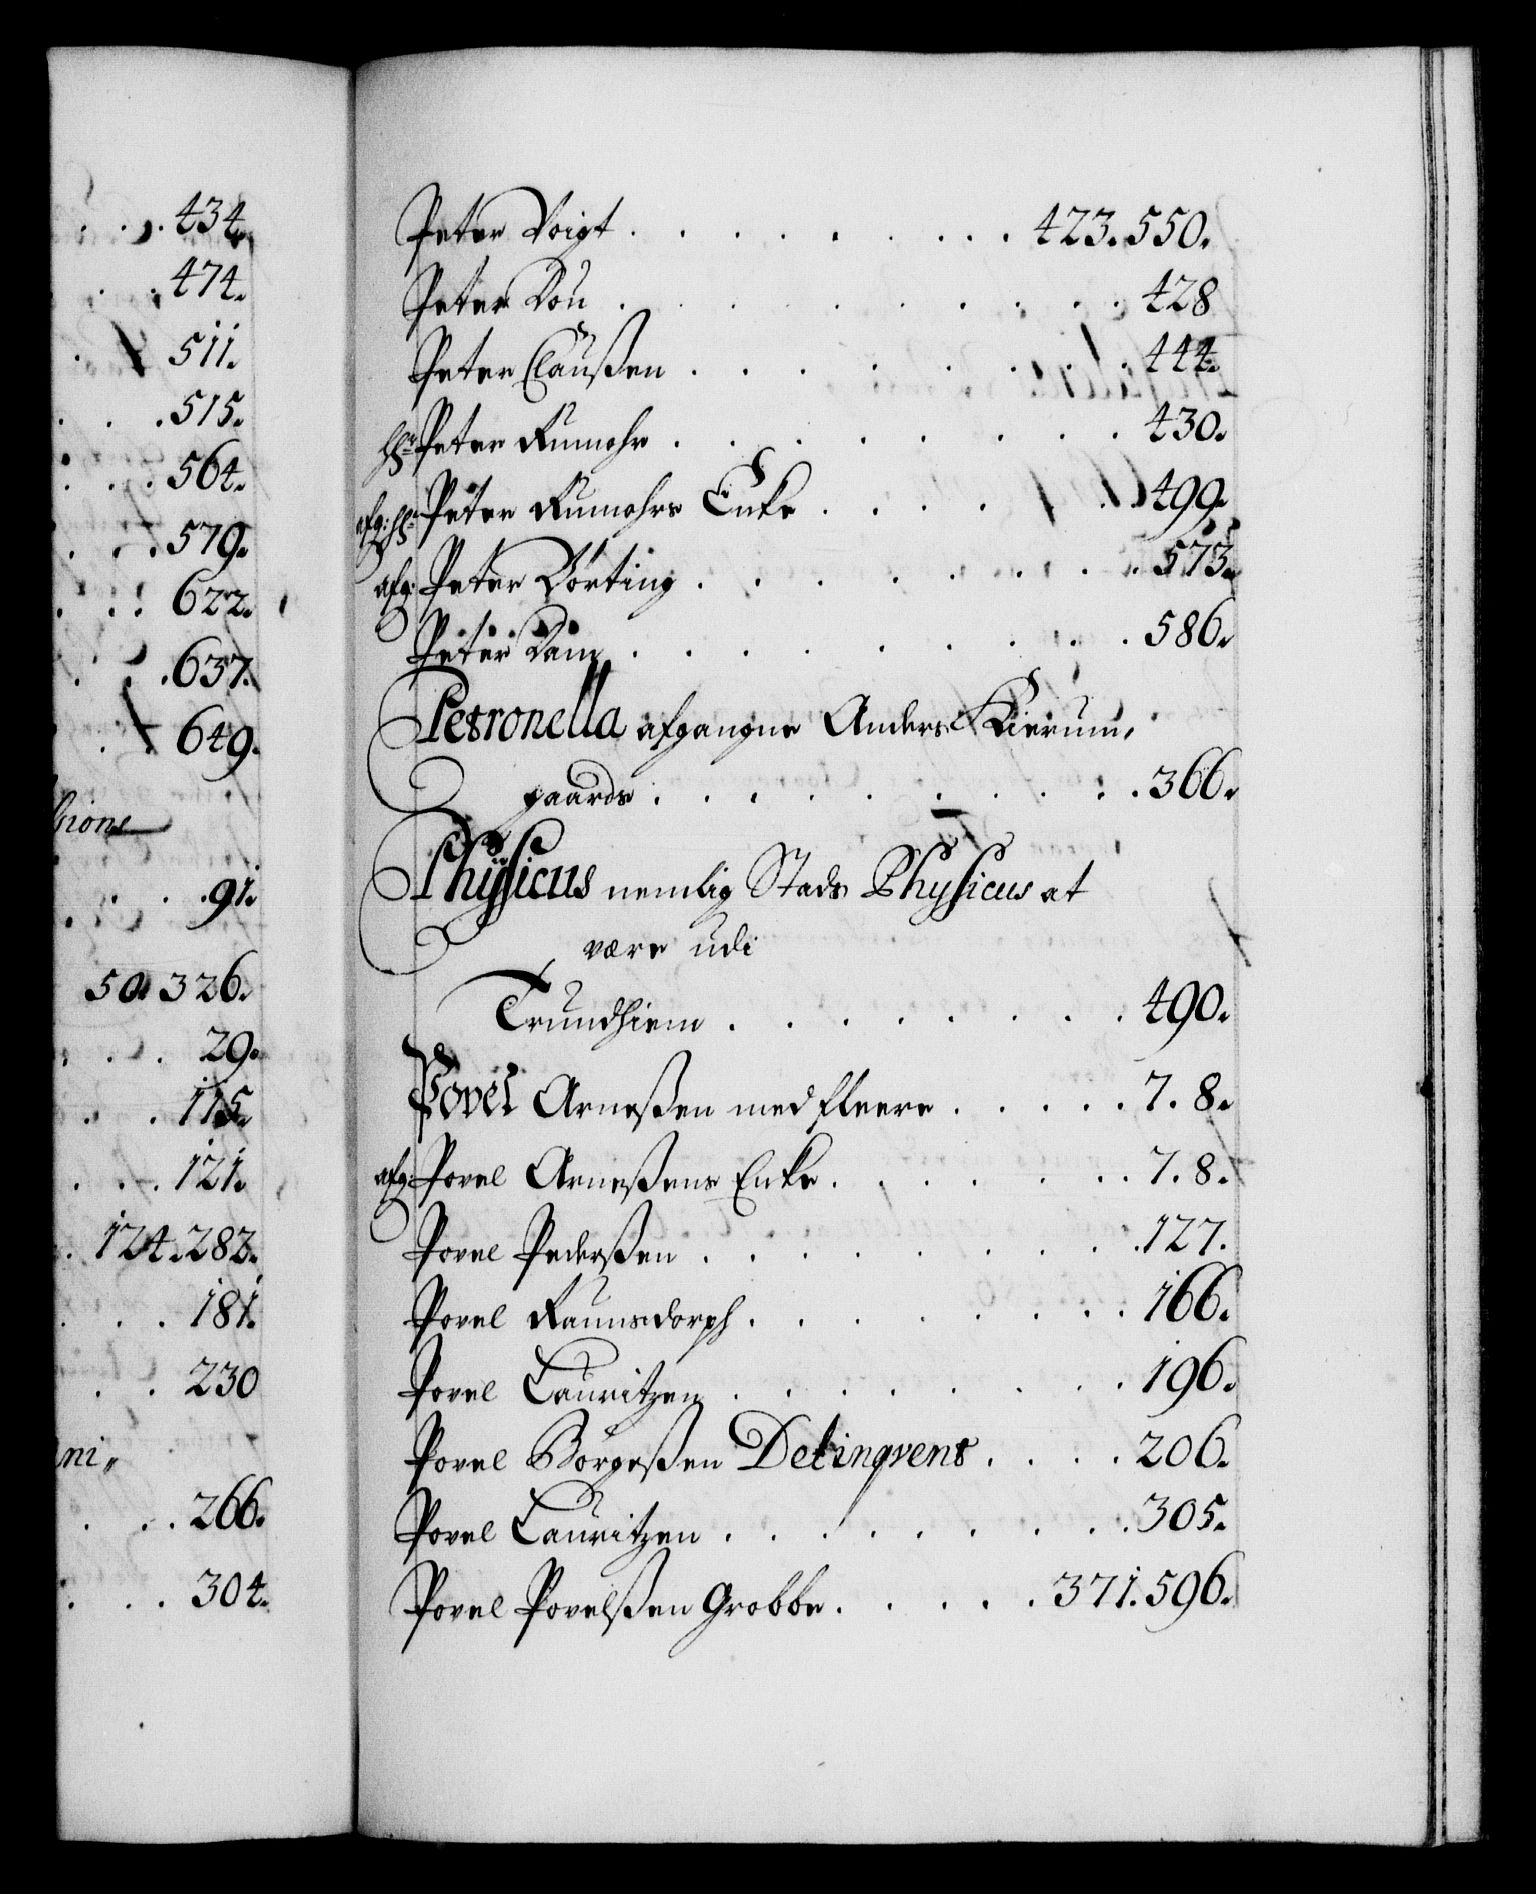 434.
474.
511.
515.
564.
579.
622.
637.
649.
sions
91.
50. 326.
29.
115.
121.
124. 282.
181.
230
ni„
266.
304.
Peter Voigt . . . . . . . . 423. 550.
Peter Dou . . . . . . . . . 428
Peter Claußen . . . . . . . . 444.
Hr. Peter Rumohr . . . . . . . . 430.
afg: Hr. Peter Rumohrs Enke . . . . . . 499.
afg: Peter Dörting . . . . . . . . 573.
Peter Dam . . . . . . . . . 586.
Petronella afgangne Anders Kierum,
gaards . . . . . . . . . 366.
Physicus nemlig Stads Physicus at
være udi
Trundhiem . . . . . . . . 490.
Povel Arneßen med fleere . . . . . 7. 8.
afg: Povel Arneßens Enke . . . . . . . 7. 8.
Povel Pederßen . . . . . . . . . 127.
Povel Raunsdorph . . . . . . . . 166.
Povel Lauritzen . . . . . . . . 196.
Povel Börgeßen Delinqvent . . . . 206.
Povel Lauritzen . . . . . . . . 305.
Povel Povelßen Grobbe . . . . . 371. 596.